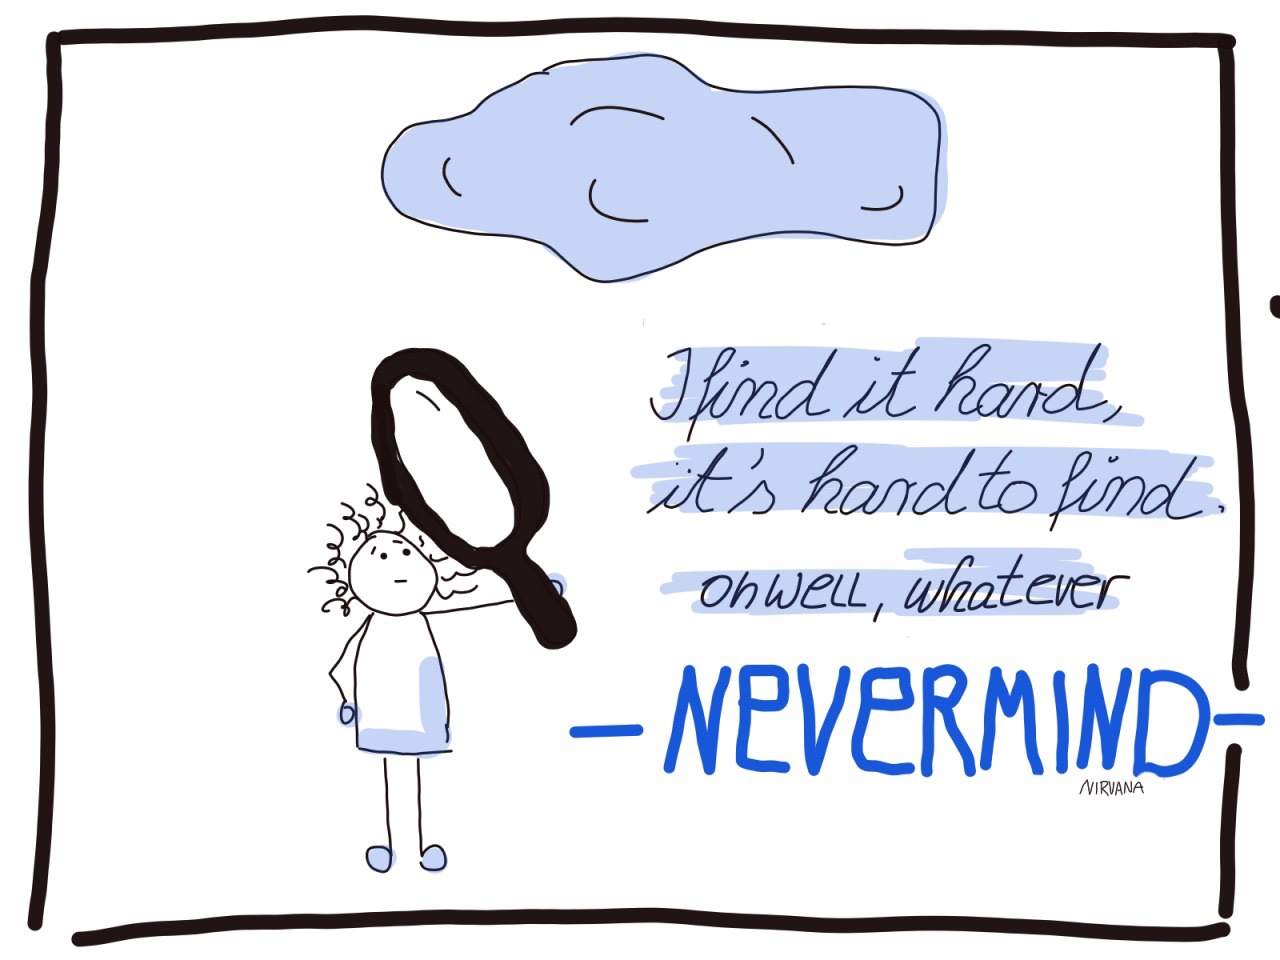 I find it hard,
it's hard to find.
oh well, whatever
— NEVERMIND —
NIRVANA